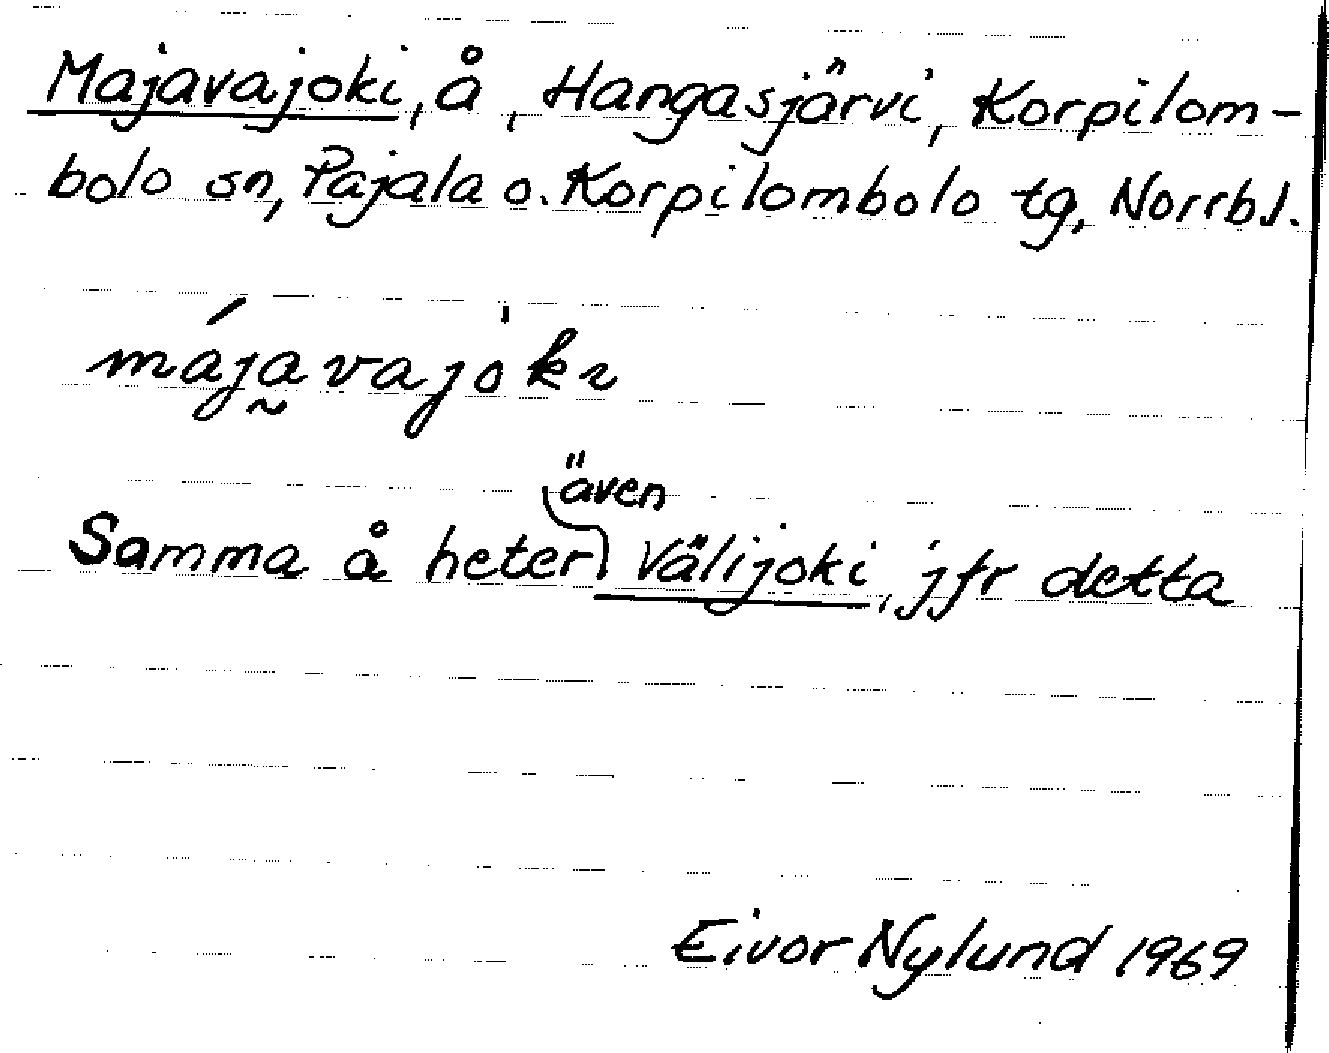 Majavajoki, å, Hangasjärvi, Korpilom-
bolo sn, Pajala o. Korpilombolo tg, Norrb l.
májа̰vajo̍kɩ
även
Samma å heter Välijoki, jfr detta
Eivor Nylund 1969